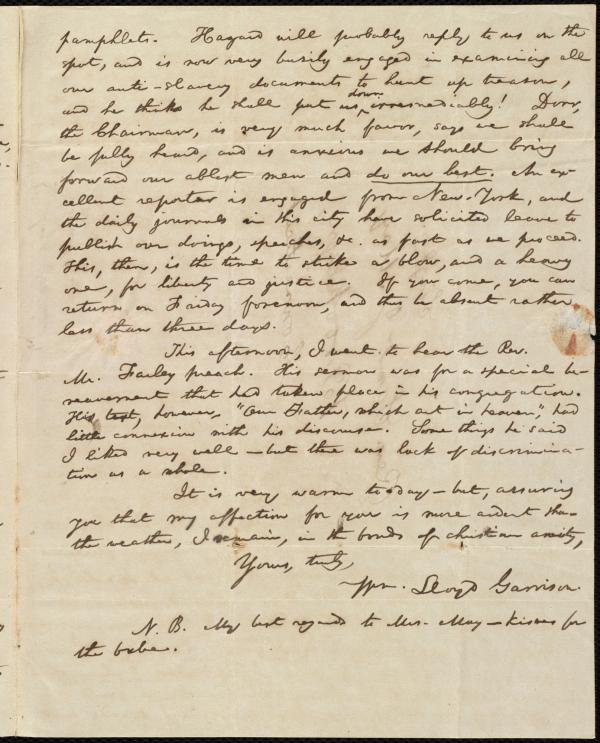 pamphlets. Hazard will probably reply to us on the
spot, and is now very busily engaged in examining all
our anti-slavery documents to hunt up treason,
and he thinks he shall put us down irremediably! Dorr,
the Chairman, is very much favor, says we shall
be fully heard, and is anxious we should bring
forward our ablest men and do our best. An ex-
cellent reporter is engaged from New-York, and
the daily journals in this city have solicited leave to
publish our doings, speeches, &c. as fast as we proceed.
This, then, is the time to strike a blow, and a heavy
one, for liberty and justice. If you come, you can
return on Friday forenoon, and thus be absent rather
less than three days.
This afternoon, I went to hear the Rev.
Mr. Farley preach. His sermon was for a special be-
reavement that had taken place in his congregation.
His text, however, "Our Father, which art in heaven," had
little connexion with his discourse. Some things he said
I liked very well — but there was lack of discrimina-
tion as a whole.
It is very warm to-day — but, assuring
you that my affection for you is more ardent than
the weather, I remain, in the bonds of christian amity,
Yours, truly,
Wm. Lloyd Garrison.
N. B. My best regards to Mrs. May — kisses for
the babe.